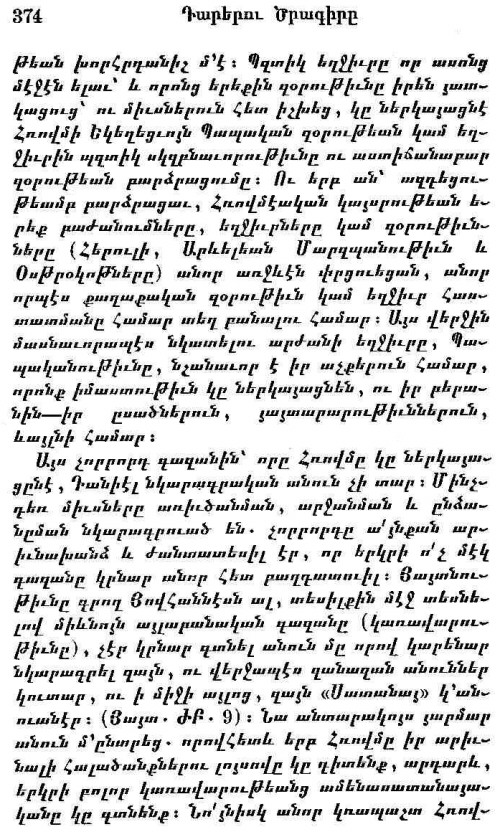 374 Դարերու Ծրագիրը
թեան խորհրդանիչ մ՚է։ Պզտիկ եղջիւրը որ ասոնց
մէջէն ելաւ՝ և որոնց երեքին զօրութիւնը իրեն յատ-
կացուց՝ ու միւսներուն հետ իշխեց, կը ներկայացնէ
Հռովմի Եկեղեցւոյն Պապական զօրութեան կամ եղ-
ջիւրին պզտիկ սկզբնաւորութիւնը ու աստիճանաբար
զօրութեան բարձրացումը։ Ու երբ ան՝ ազդեցու-
թեամբ բարձրացաւ, Հռովմէական կայսրութեան ե-
րեք բաժանումները, եղջիւրները կամ զօրութիւն-
ները (Հերուլի, Արևելեան Մարզպանութիւն և
Օսթրօկոթները) անոր առջևէն փրցուեցան, անոր
որպէս քաղաքական զօրութիւն կամ եղջիւր հաս-
տատմանը համար տեղ բանալու համար։ Այս վերջին
մասնաւորապէս նկատելու արժանի եղջիւրը, Պա-
պականութիւնը, նշանաւոր է իր աչքերուն համար,
որոնք իմաստութիւն կը ներկայացնեն, ու իր բերա-
նին—իր ըսածներուն, յայտարարութիւններուն,
ևայլնի համար։
Այս չորրորդ գազանին՝ որը Հռովմը կը ներկայա-
ցընէ, Դանիէլ նկարագրական անուն չի տար։ Մինչ-
դեռ միւսները առիւծանման, արջանման և ընձա-
նըման նկարագրուած են. չորրորդը ա՛յնքան ար-
իւնախանձ և ժանտատեսիլ էր, որ երկրի ո՛չ մէկ
գազանը կրնար անոր հետ բաղդատուիլ։ Յայտնու-
թիւնը գրող Յովհաննէսն ալ, տեսիլքին մէջ տեսնե-
լով միևնոյն այլաբանական գազանը (կառավարու-
թիւնը), չէր կրնար գտնել անուն մը որով կարենար
նկարագրել զայն, ու վերջապէս զանազան անուններ
կուտար, ու ի միջի այլոց, զայն «Սատանայ» կ՚ան-
ուանէր։ (Յայտ. ԺԲ. 9)։ Նա անտարակոյս յարմար
անուն մ՚ընտրեց. որովհետև երբ Հռովմը իր արիւ-
նալի հալածանքներու լոյսովը կը դիտենք, արդարև,
երկրի բոլոր կառավարութեանց ամենասատանայա-
կանը կը գտնենք։ Նո՛յնիսկ անոր կռապաշտ Հռով-